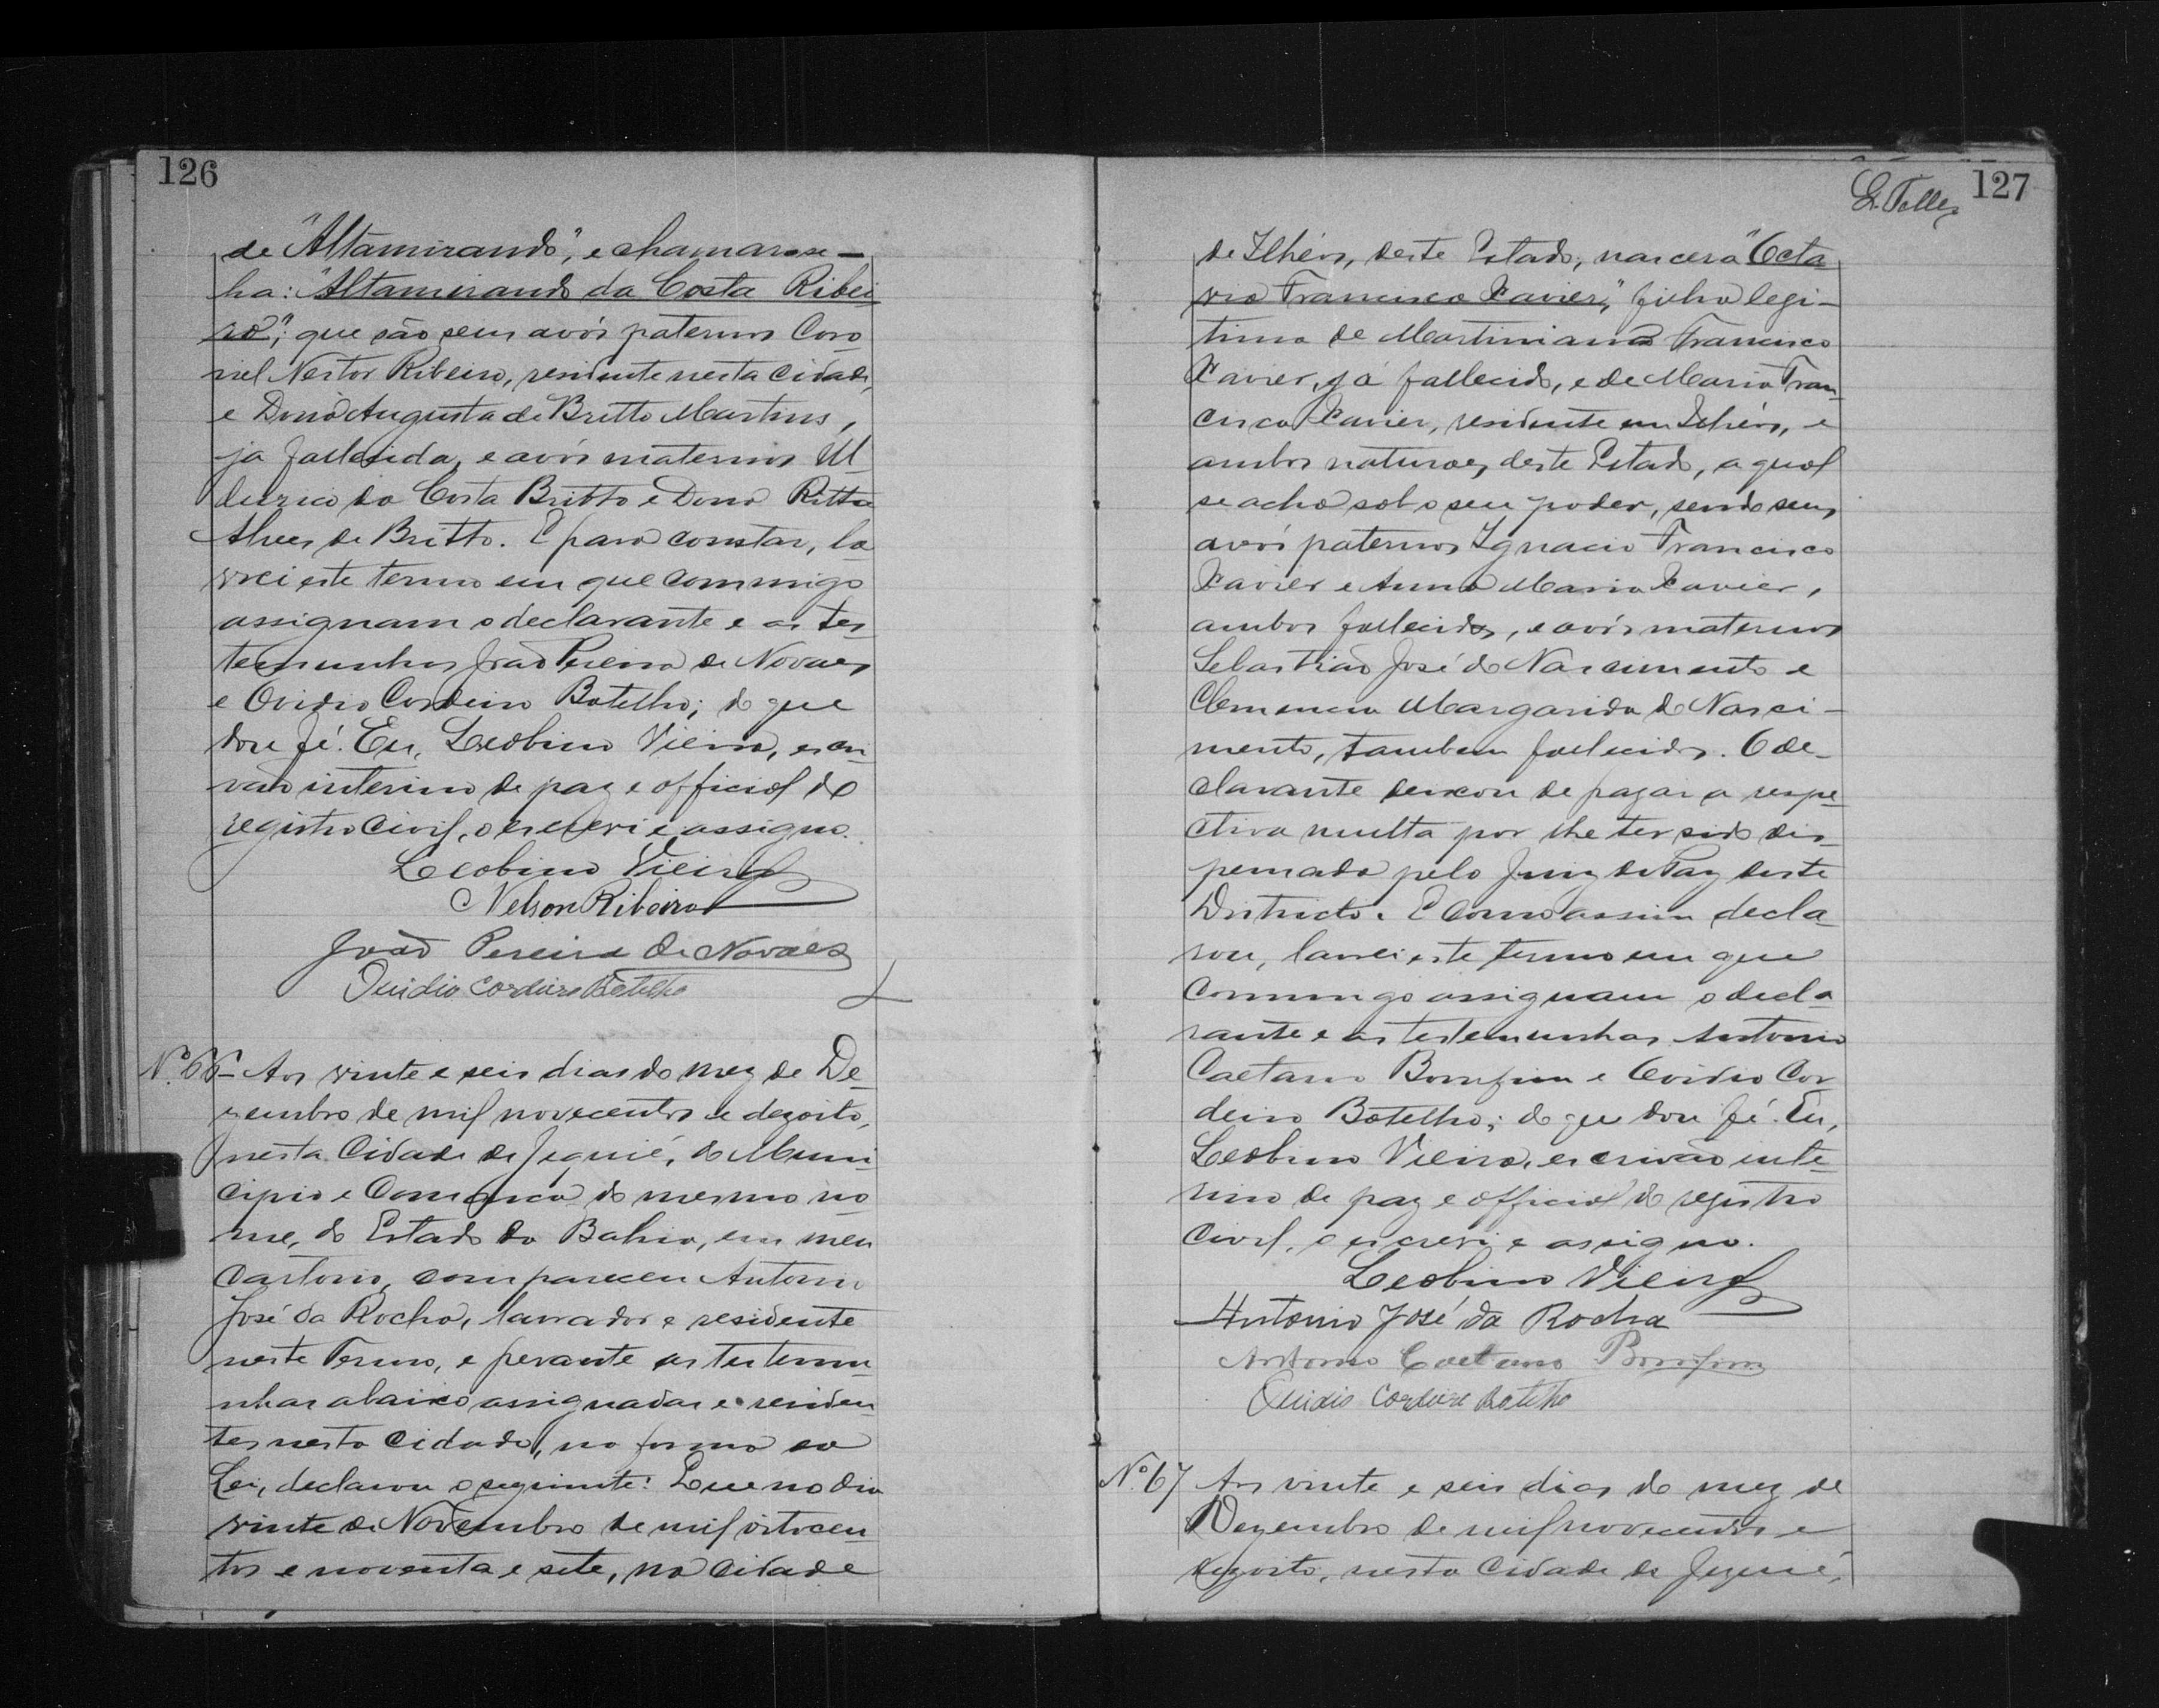 126
de "Altamirando", e chamar-se-
ha: "Altamirando da Costa Ribei
ro"; que são seus avós paternos Coro
nel Nestor Ribeiro, residente nesta Cidade,
e Dona Augusta de Britto Martins,
já fallecida, e avós maternos Ul
derico da Costa Britto e Dona Ritta
Alves de Britto. E para constar, la
vrei este termo em que commigo
assignam o declarante e as tes
temunhas João Pereira de Novaes
e Ovidio Cordeiro Botelho; do que
dou fé. Eu, Leobino Vieira, escri
vão interino de paz e official do
registro civil, o escrevi e assigno.
Leobino Vieira
Nelson Ribeiro
João Pereira de Novaes
Ovidio Cordeiro Botelho
Nº 66 - Aos vinte e seis dias do mez de De
zembro de mil novecentos e dezoito,
nesta Cidade de Jequié, do Muni
cipio e Comarca do mesmo no
me, do Estado da Bahia, em meu
Cartorio, compareceu Antonio
José da Rocha, lavrador e residente
neste Termo, e perante as testemu
nhas abaixo assignadas e residen
tes nesta Cidade, na forma da
Lei, declarou o seguinte: Que no dia
vinte de Novembro de mil oitocen
tos e noventa e sete, na Cidade
127
E. Telles
de Ilhéos, deste Estado, nascera "Octa
vio Francisco Xavier," filho legi-
timo de Martiniano Francisco
Xavier, já fallecido, e de Maria Fran
cisca Xavier, residente em Ilhéos, e
ambos naturaes deste Estado, a qual
se acha sob o seu poder, sendo seus
avós paternos Ignacio Francisco
Xavier e Anna Maria Xavier,
ambos fallecidos, e avós maternos
Sebastião José do Nascimento e
Clemencia Margarida do Nasci-
mento, tambem fallecidos. O de-
clarante deixou de pagar a respe
ctiva multa por lhe ter sido dis
pensada pelo Juiz de Paz deste
Districto. E como assim decla
rou, lavrei este termo em que
commigo assignam o decla
rante e as testemunhas Antonio
Caetano Bomfim e Ovidio Cor
deiro Botelho; do que dou fé. Eu,
Leobino Vieira, escrivão inte
rino de paz e official do registro
civil, o escrevi e assigno.
Leobino Vieira
Antonio José da Rocha
Antonio Caetano Bomfim
Ovidio Cordeiro Botelho
Nº 67 Aos vinte e seis dias do mez de
Dezembro de mil novecentos e
dezoito, nesta Cidade de Jequié,